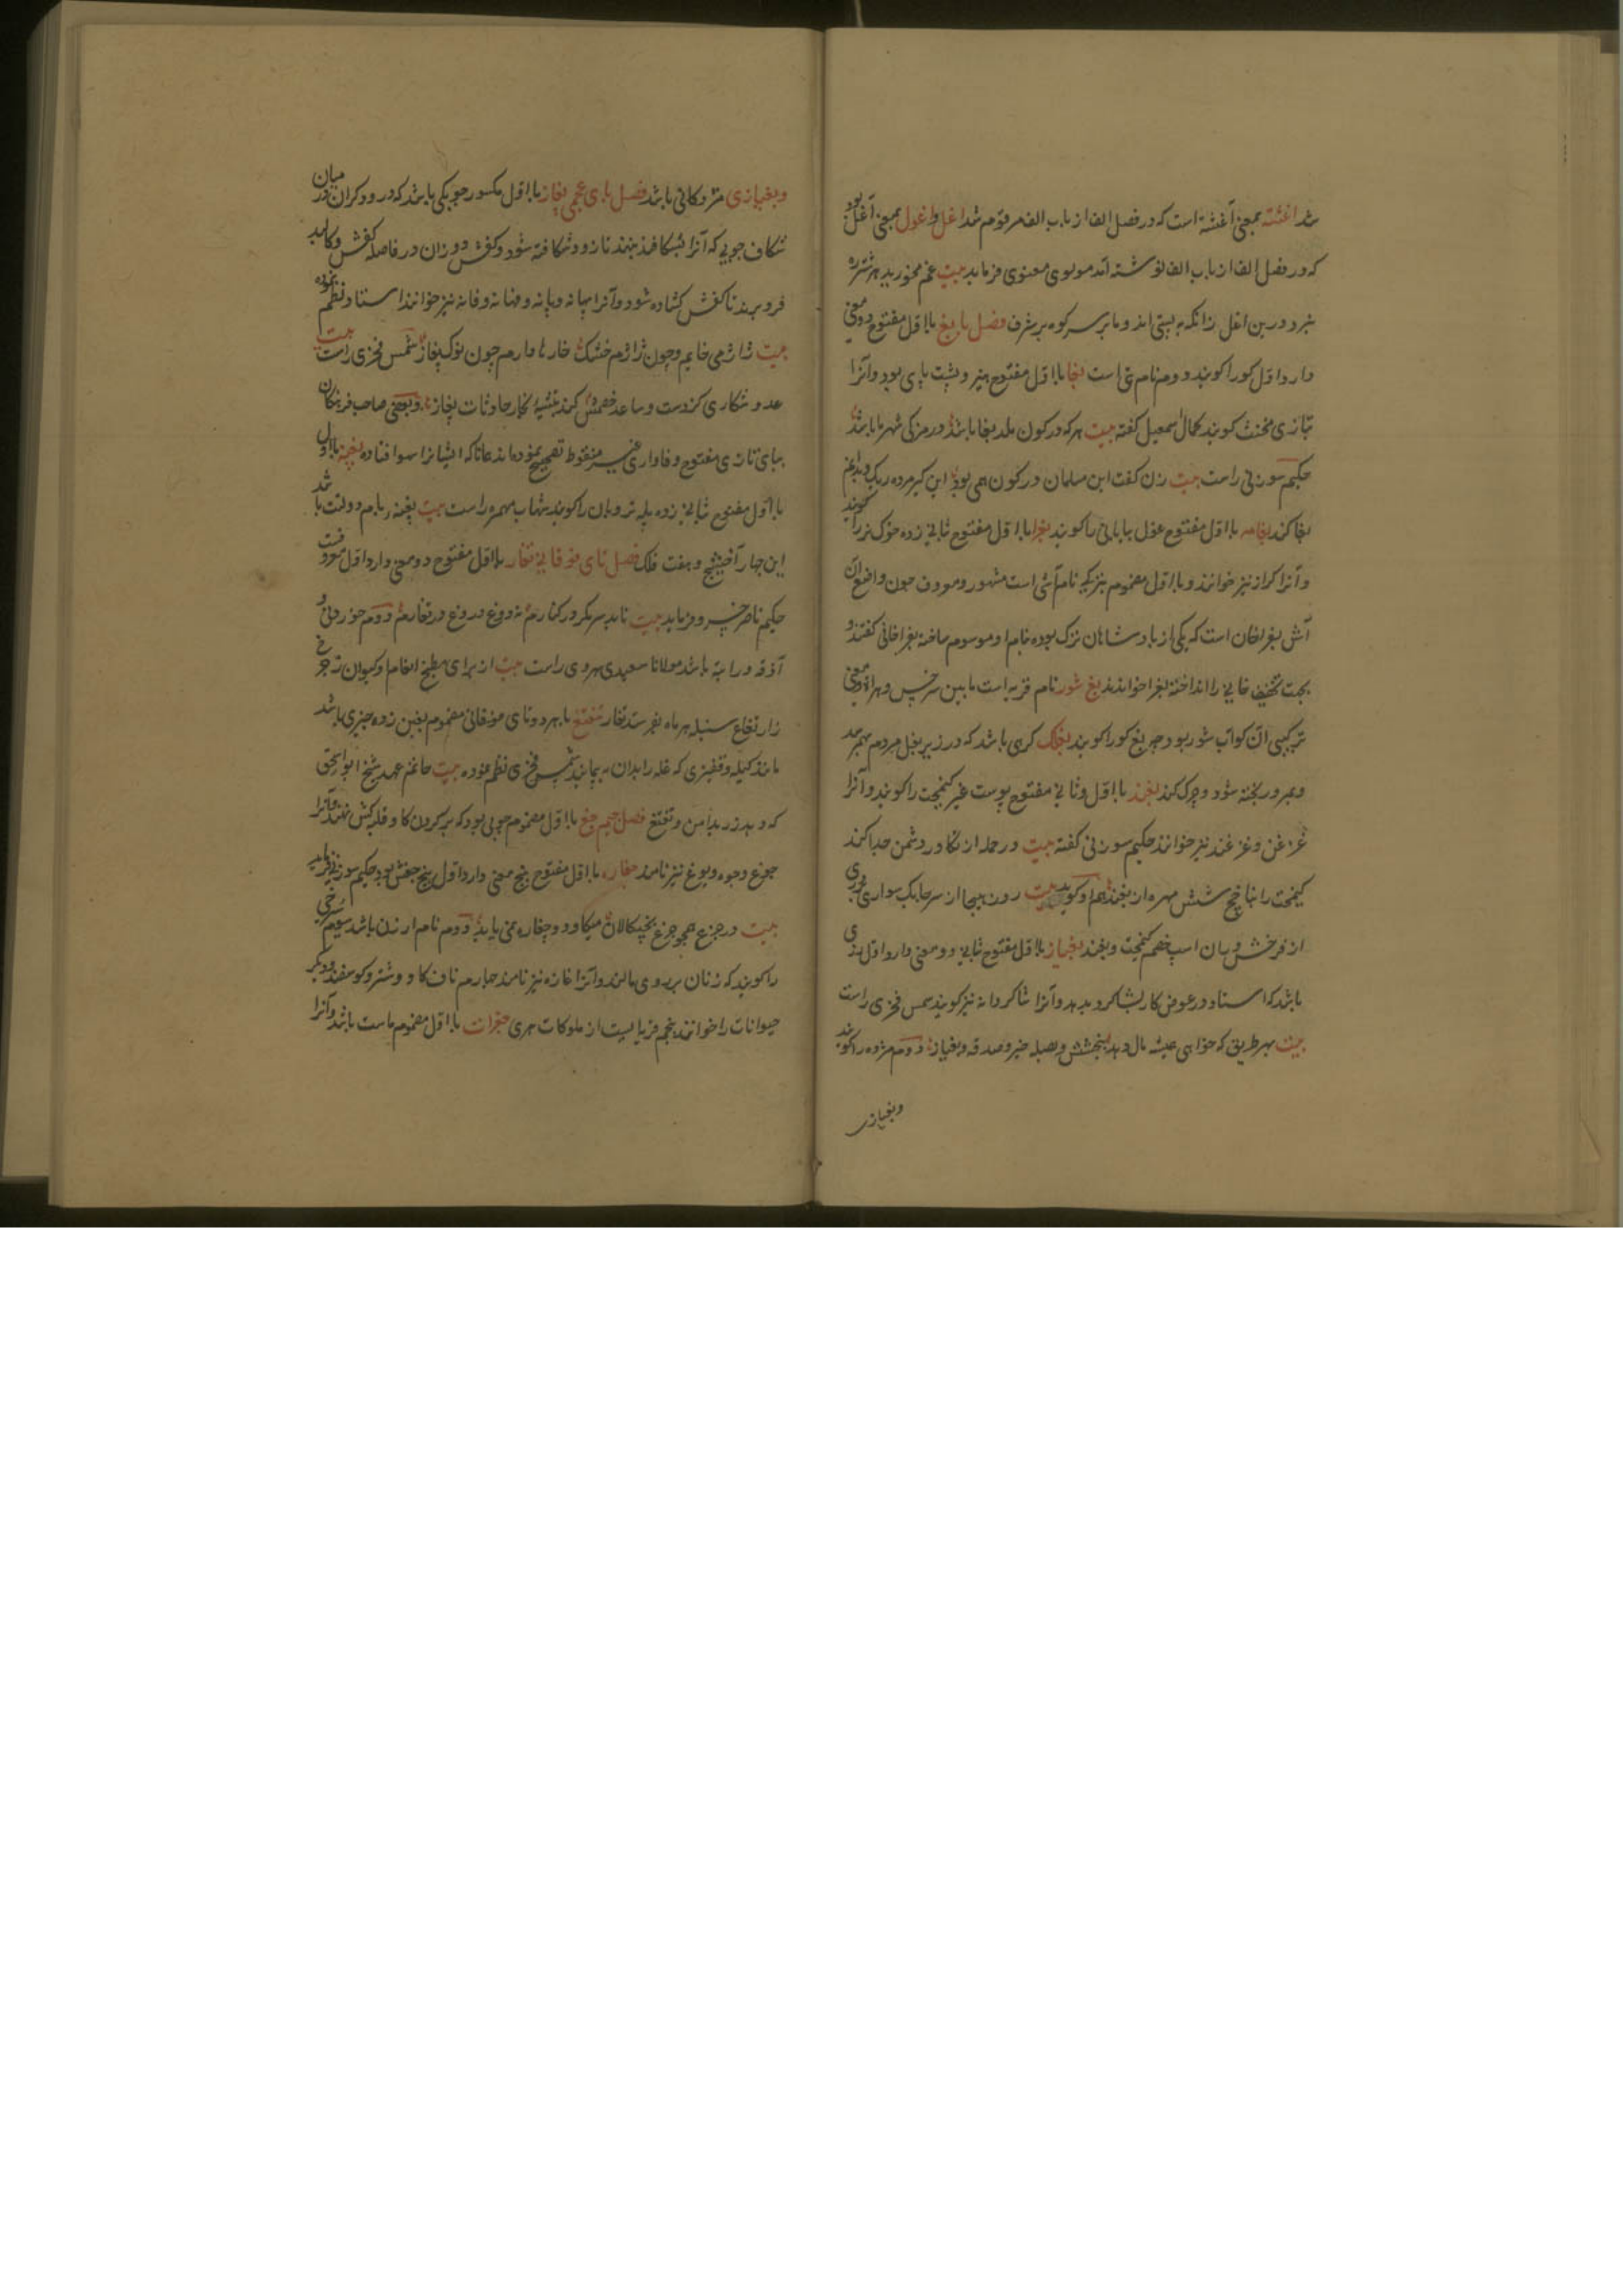 شد اغشته بمعنی آغشته است که در فصل الف از باب الف مرقوم شد اغل و اغول بمعنی آغل بود
که در فصل الف از باب الف نوشته آمد مولوی معنوی فرماید بیت غم مخورید هر شتر ره
نبرد درین اغل زانکه به پستی اند و ما بر سر کوه بر شرف فصل با بغ با اول مفتوح دو معنی
دارد اول کو را گویند دوم نام بتی است بغا با اول مفتوح هیز و پشت پای بود و آنرا
بتازی مخنث گویند کمال اسمعیل گفته بیت هرکه در کون ملد بغا باشد در مزکی شهر ما باشد
حکیم سوزنی راست بیت زن گفت این مسلمان در کون همی بود این کبر مرده ریک
بغا کند بغامه با اول مفتوح غول بیابانی را گویند بغرا با اول مفتوح ثانی زده خوک نر را گویند
و آنرا کراز نیز خوانند و با اول مضموم نیز یکی نام آشی است مشهور و معروف چون واضع آن
آش بغرا خان است که یکی از پادشاهان ترک بوده بنام او موسوم ساخته بغرا خانی گفتند و
بجهت تخفیف خانی را انداخته بغرا خواندند بغ شور نام قریه است مابین سرخس و هراة و معنی
ترکیبی آن کو آب شور بود چه بغ کو را گویند بغلک کرهی باشد که در زیر بغل مردم بهم رسد
و بمرور پخته شود و چرک کند بغند با اول و ثانی مفتوح پوست غیر کیمخت را گویند و آنرا
غرغن و غرغند نیز خوانند حکیم سوزنی گفته بیت در حمله از تکاور دشمن جدا کند
کیمخت را بناخج شش مهره از بغند هم او گوید بیت روز هیجا از سر چابک سواری بردری
از فرخش و ران اسب خصم کیمخت و بغند بغیاز با اول مفتوح ثانی دو معنی دارد اول زری
باشد که استاد در عوض کار بشاگرد بدهد و آنرا شاگردانه نیز گویند شمس فخری راست
بیت بهر طریق که خواهی همیشه مال دهد ببخشش و بصله خیر و صدقه و بغیاز دوم مژده را گویند
و بغیازی
و بغیازی مژدگانی باشد فصل بای عجمی پغاز با اول مکسور چوبکی باشد که درودگران در میان
شکاف چوبی که آنرا بشکافند بنهند تا زود شکافته شود و کفش دوزان در فاصله کفش و کالبد
فرو برند تا کفش کشاده شود و آنرا پهانه و پانه و فهانه و فانه نیز خوانند استاد نظم نموده
بیت ژاژ می خایم و چون ژاژم خشک خارها دارم چون نوک پغاز شمس فخری راست بیت
عدو شکاری کردست و ساعد خصمش کند بتیشه انکار حادثات پغاز و بعضی صاحب فرهنگان
ببای تازی مفتوح و فاواری غیر منقوط تصحیح نموده اند همانا که ایشانرا سهو افتاده پغنه با اول
با اول مفتوح ثانی زده پله نردبان را گویند شهاب مهمره راست بیت پغنه بام دولت باشد
این چهار آخشیج و هفت فلک فصل تای فوقانی تغار با اول مفتوح دو معنی دارد اول معروفست
حکیم ناصر خسرو فرماید بیت ناید سرمکر در کنارم نه دوغ دروغ در تغارم دوم خوردنی و
آذقه و راتبه باشد مولانا سعیدی هروی راست بیت از برای مطبخ انعام او کیوان ز چرخ
زارتفاع سنبله هر ماه بفرستد تغار تغتغ با هر دو تای فوقانی مضموم بغین زده چیزی باشد
مانند کیله و قفیزی که غله را بدان به پیمایند شمس فخری نظم نموده بیت حاتم عهد شیخ ابو اسحق
که دهد زر بدامن و تغتغ فصل جیم جغ با اول مضموم چوبی بود که بر گردن گاو قلبه کش نهند و آنرا
جوغ و جوه و یوغ نیز نامند جغاره با اول مفتوح پنج معنی دارد اول پنج جغش بود حکیم سوزنی فرماید
بیت در جزع همچو جزع بخیکالان میکاود و جغاره نمی یابد دوم نام ارزن باشد سیوم سرخی
را گویند که زنان بر روی مالند و آنرا غازه نیز نامند چهارم ناف گاو و شتر و گوسفند و دیگر
حیوانات را خوانند پنجم قریه ایست از ملوکات هری جغرات با اول مضموم ماست باشد و آنرا